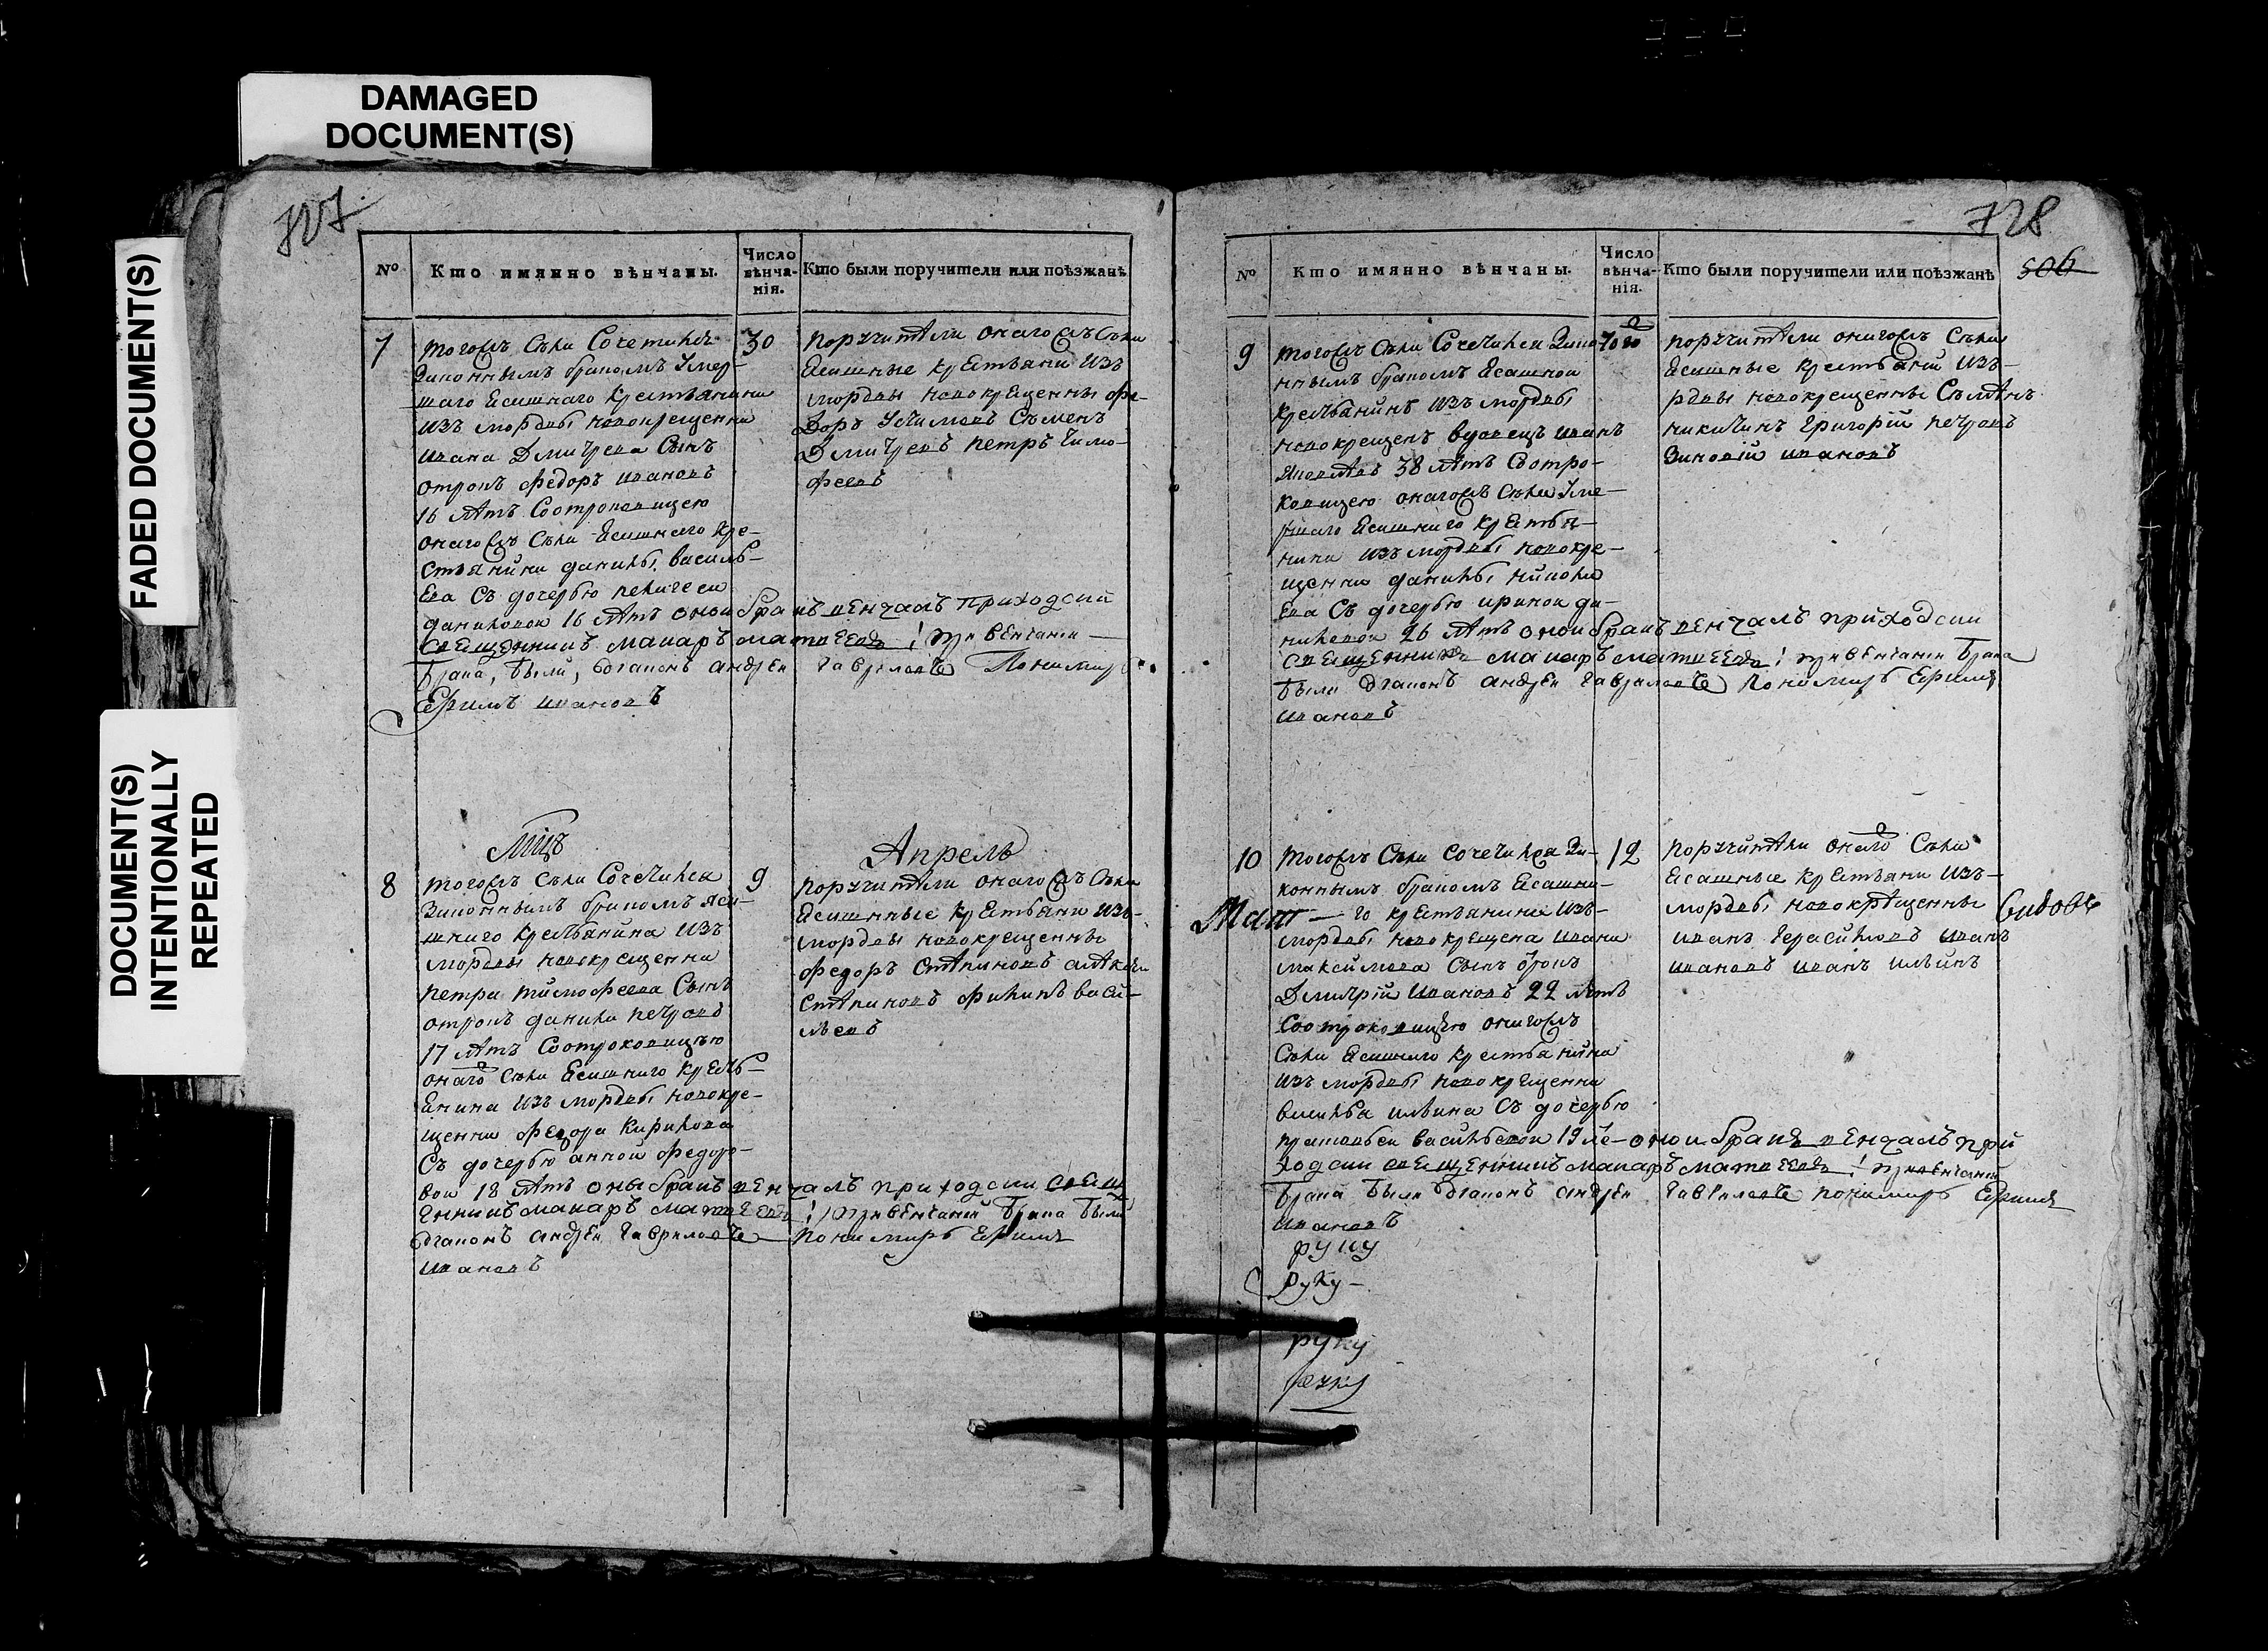 DAMAGED
DOCUMENT(S)
FADED DOCUMENT(S)
DOCUMENT(S)
INTENTIONALLY
REPEATED
№
Кто имянно вѣнчаны.
Число
вѣнча-
нія.
Кто были поручители или поѣзжанѣ
7
тогожъ Села
законнымъ бракомъ умер-
шаго Ясашнаго крестьянина
изъ мордвы новокрещенна
ивана Дмитрева Сынъ
отрокъ федоръ ивановъ
16 летъ Соотроковицею
онагожъ Села Ясашнаго кре-
стьянина данилы василь-
ева Съ дочерью
даниловой 16 летъ оной бракъ венчалъ приходски
священникъ макаръ матвеевъ: при венчании
брака, были, диаконъ андрей гавриловъ Пономарь
Ефимъ ивановъ
30
поручители онагожъ Села
Ясашные крестьяни изъ
мордвы новокрещенны фе-
доръ Сѣменъ
Дмитревъ петръ тимо-
феевъ
Мцъ
Апрель
8
тогожъ Села
законнымъ бракомъ яса-
шнаго крестьянина изъ
мордвы новокрещенна
петра тимофеева Сынъ
отрокъ данила петровъ
17 летъ Соотроковицъю
онаго Села Ясашнаго кресть-
енина изъ мордвы новокре-
щенна федора Кирилова
Съ дочерью анной федоро-
вой 18 летъ оны бракъ венчалъ приходски свящ
енникъ макаръ матвеевъ: при венчаний брака были
диаконъ андрей гавриловъ пономарь Ефимъ
ивановъ
9
поручители онагожъ Села
Ясашные крестьяни изъ-
мордвы новокрещенны
федоръ Степановъ алексей
Степановъ филипъ васи-
льевъ
728
506
№
Кто имянно вѣнчаны.
Число
вѣнча-
нія.
Кто были поручители или поѣзжанѣ
9
тогожъ Села зако-
ннымъ бракомъ Ясашной
крестьянинъ изъ мордвы
новокрещенъ вдовецъ иванъ
яковлевъ 38 летъ Соотро-
ковицею онагожъ Села уме-
ршаго Ясашнаго крестья-
нина изъ мордвы новокре-
щенна данилы
ева Съ дочерью ириной да-
ниловой 26 летъ оной бракъ венчалъ приходски
священникъ макаръ матвеевъ: при венчании брака
были диаконъ андрей гавриловъ пономарь Ефимъ
ивановъ
поручители онагожъ Села
Ясашные крестьяни изъ-
рдвы новокрещенны Семенъ
никитинъ григорій петровъ
Зиновій ивановъ
10
тогожъ Села за-
коннымъ бракомъ Ясашна-
го крестьянина изъ-
мордвы новокрещена ивана
максимова Сынъ отрокъ
Дмитрій ивановъ 22 летъ
Соотроковицъю онагожъ
Села Ясашнаго крестьянина
изъ мордвы новокрещенна
василья ильина Съ дочерью
васильевой 19 ле- оной бракъ венчалъ при
ходски священникъ макаръ матвеевъ: при венчании
брака были диаконъ андрей гавриловъ пономарь Ефимъ
ивановъ
руку
руку-
руку
руку
12
поручители онаго Села
Ясашные крестьяни изъ-
мордвы новокрещенны
иванъ герасимовъ иванъ
ивановъ иванъ ильинъ